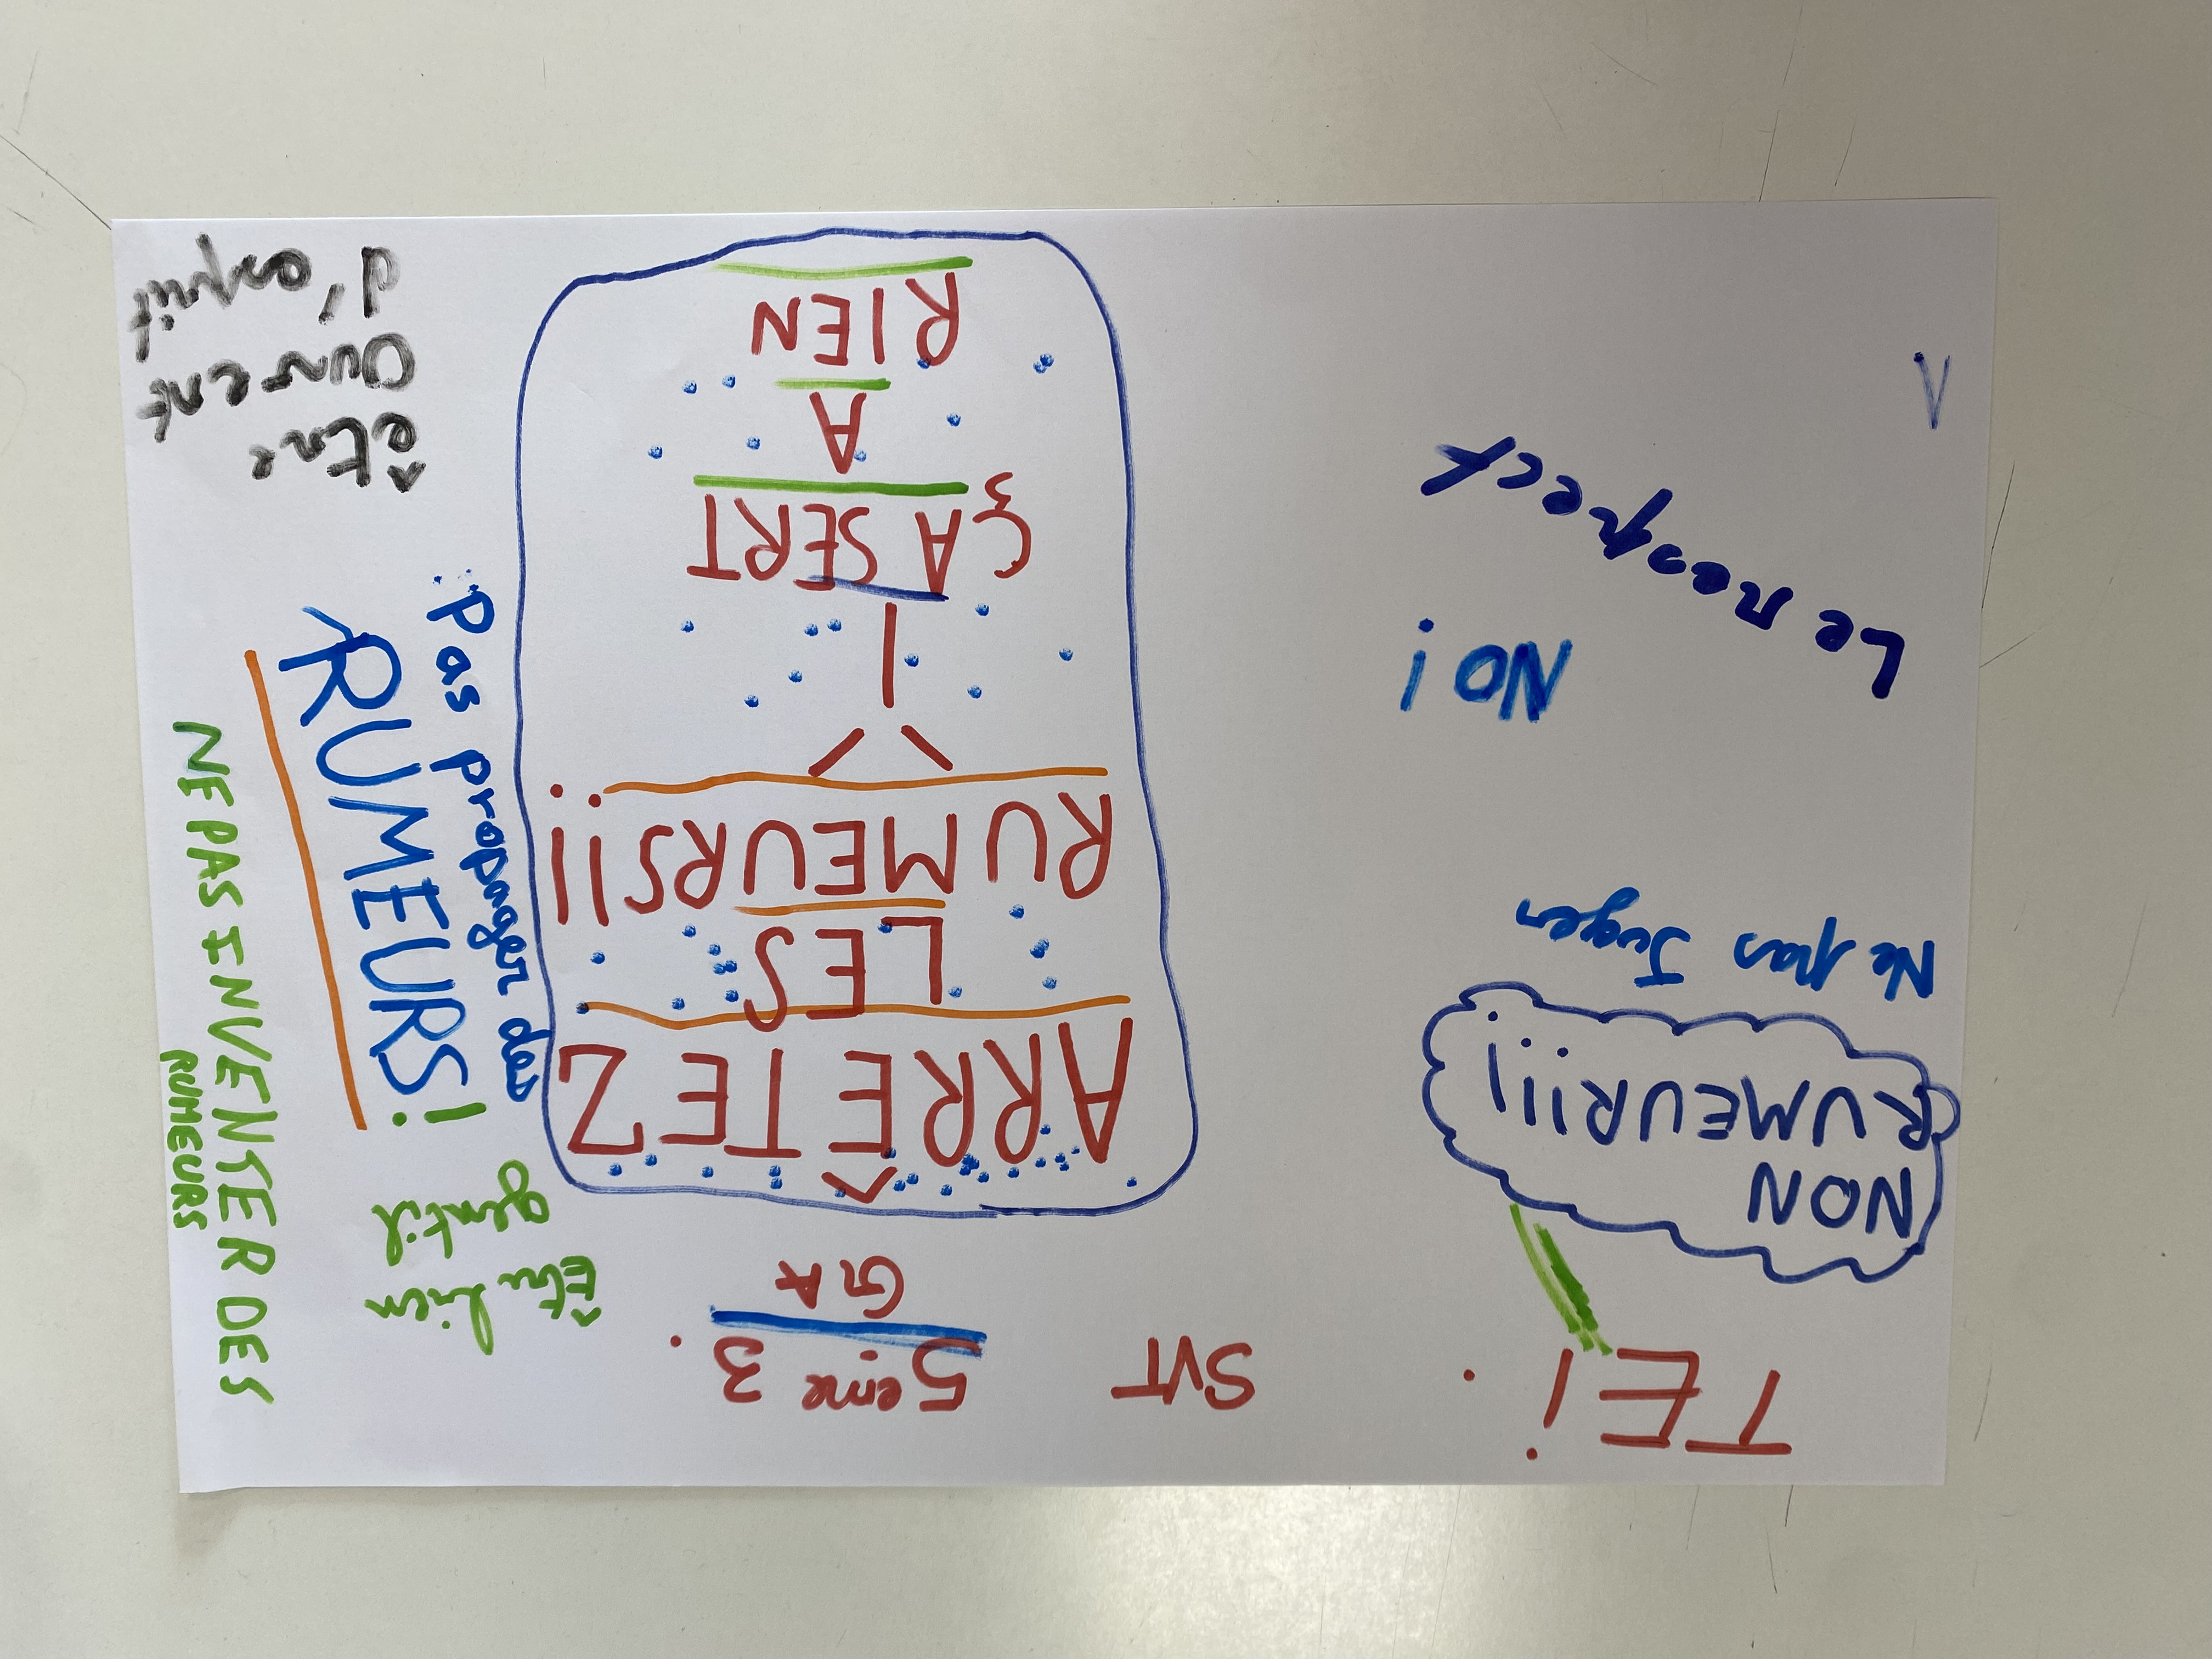 TE!
SVT
5eme 3.
GA
NON
RUMEUR!!!
Ne pas Juger
NO!
Le respeck
ARRÊTEZ
LES
RUMEURS!!
ÇA SERT
A
RIEN
Être bien
gentil
Pas propager des
RUMEURS!
NE PAS INVENTER DES
RUMEURS
être
ouvert
d'esprit